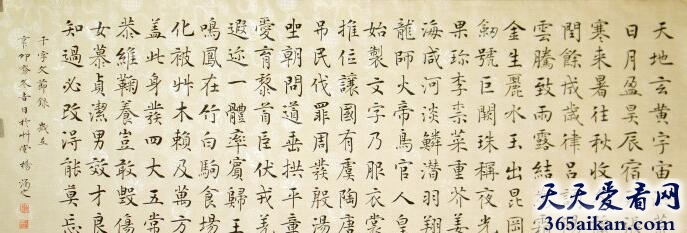 天地玄黄宇宙
日月盈昃辰宿張
寒来暑往秋收
閏餘成歲律吕
雲騰致雨露結
金生麗水玉出昆岡
劒號巨闕珠稱夜光
果珍李柰菜重芥姜
海咸河淡鱗潛羽翔
龍師火帝鳥官人皇
始製文字乃服衣裳
推位讓國有虞陶唐
吊民伐罪周發殷湯
坐朝問道垂拱平章
愛育黎首臣伏戎羌
遐迩一體率賓歸王
鳴鳳在竹白駒食場
化被艸木賴及萬方
蓋此身髮四大五常
恭維鞠養豈敢毀傷
女慕貞潔男效才良
知過必改得能莫忘
千字文節錄 歲在
辛卯冬吉日於州楊
天天爱看网
365aikan.com